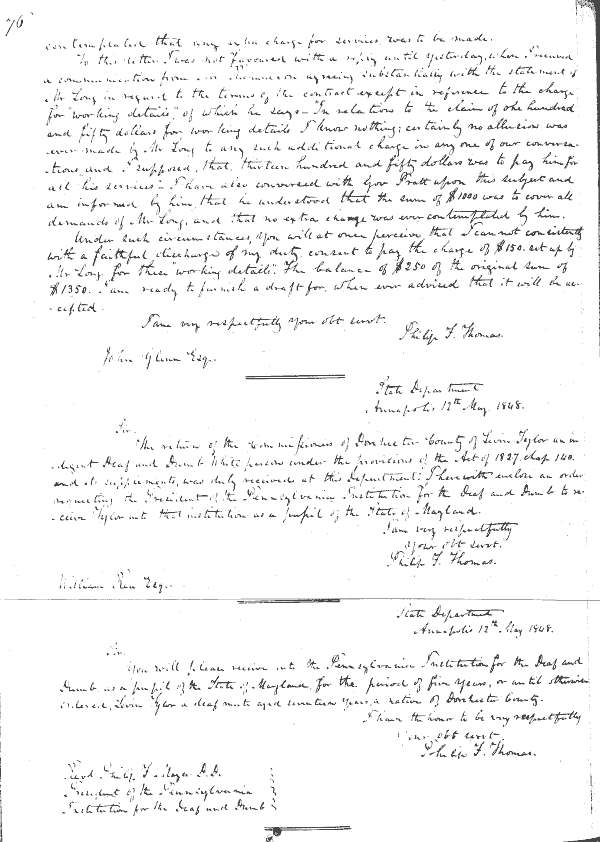 76
contemplated that any extra charge for services was to be made.
To this letter I was not favoured with a reply until yesterday, when I received
a communication from Mr agreeing substantially with the statement of
Mr Long in regard to the terms of the contract except in reference to the charge
for "working details," of which he says – "In relations to the claim of one hundred
and fifty dollars for working details I know nothing; certainly no allusion was
ever made by Mr Long to any such additional charge in any one of our conversa-
tions, and I supposed, that, thirteen hundred and fifty dollars was to pay him for
all his services" – I have also conversed with Gov Pratt upon this subject and
am informed by him, that he understood that the sum of $1000 was to cover all
demands of Mr Long, and that no extra charge was ever contemplated by him.
Under such circumstances, you will at once perceive that I can not consistently
with a faithful discharge of my duty consent to pay the charge of $150. set up by
Mr Long for these "working details". The balance of $250 of the original sum of
$1350. I am ready to furnish a draft for, when ever advised that it will be ac-
cepted.
I am very respectfully your obt servt.
Philip F. Thomas.
John Glenn Esq.
State Department
Annapolis 12th May. 1848.
Sir.
The return of the Commissioners of Dorchester County of Levin Tylor an in-
digent Deaf and Dumb White person under the provisions of the Act of 1827. chap 140.
and its supplements, was duly received at this Department. I herewith enclose an order
requesting the President of the Pennsylvania Institution for the Deaf and Dumb to re-
ceive Tylor into that institution as a pupil of the State of Maryland.
I am very respectfully
your obt servt.
Philip F. Thomas.
William Rea Esq.
State Department
Annapolis 12th May 1848.
Sir.
You will please receive into the Pennsylvania Institution for the Deaf and
Dumb, as a pupil of the State of Maryland, for the period of five years, or until otherwise
ordered, Levin Tylor a deaf mute aged seventeen years, a native of Dorchester County.
I have the honor to be very respectfully
Your obt servt.
Philip F. Thomas.
Revd Philip F. Mayer D.D.
President of the Pennsylvania
Institution for the Deaf and Dumb